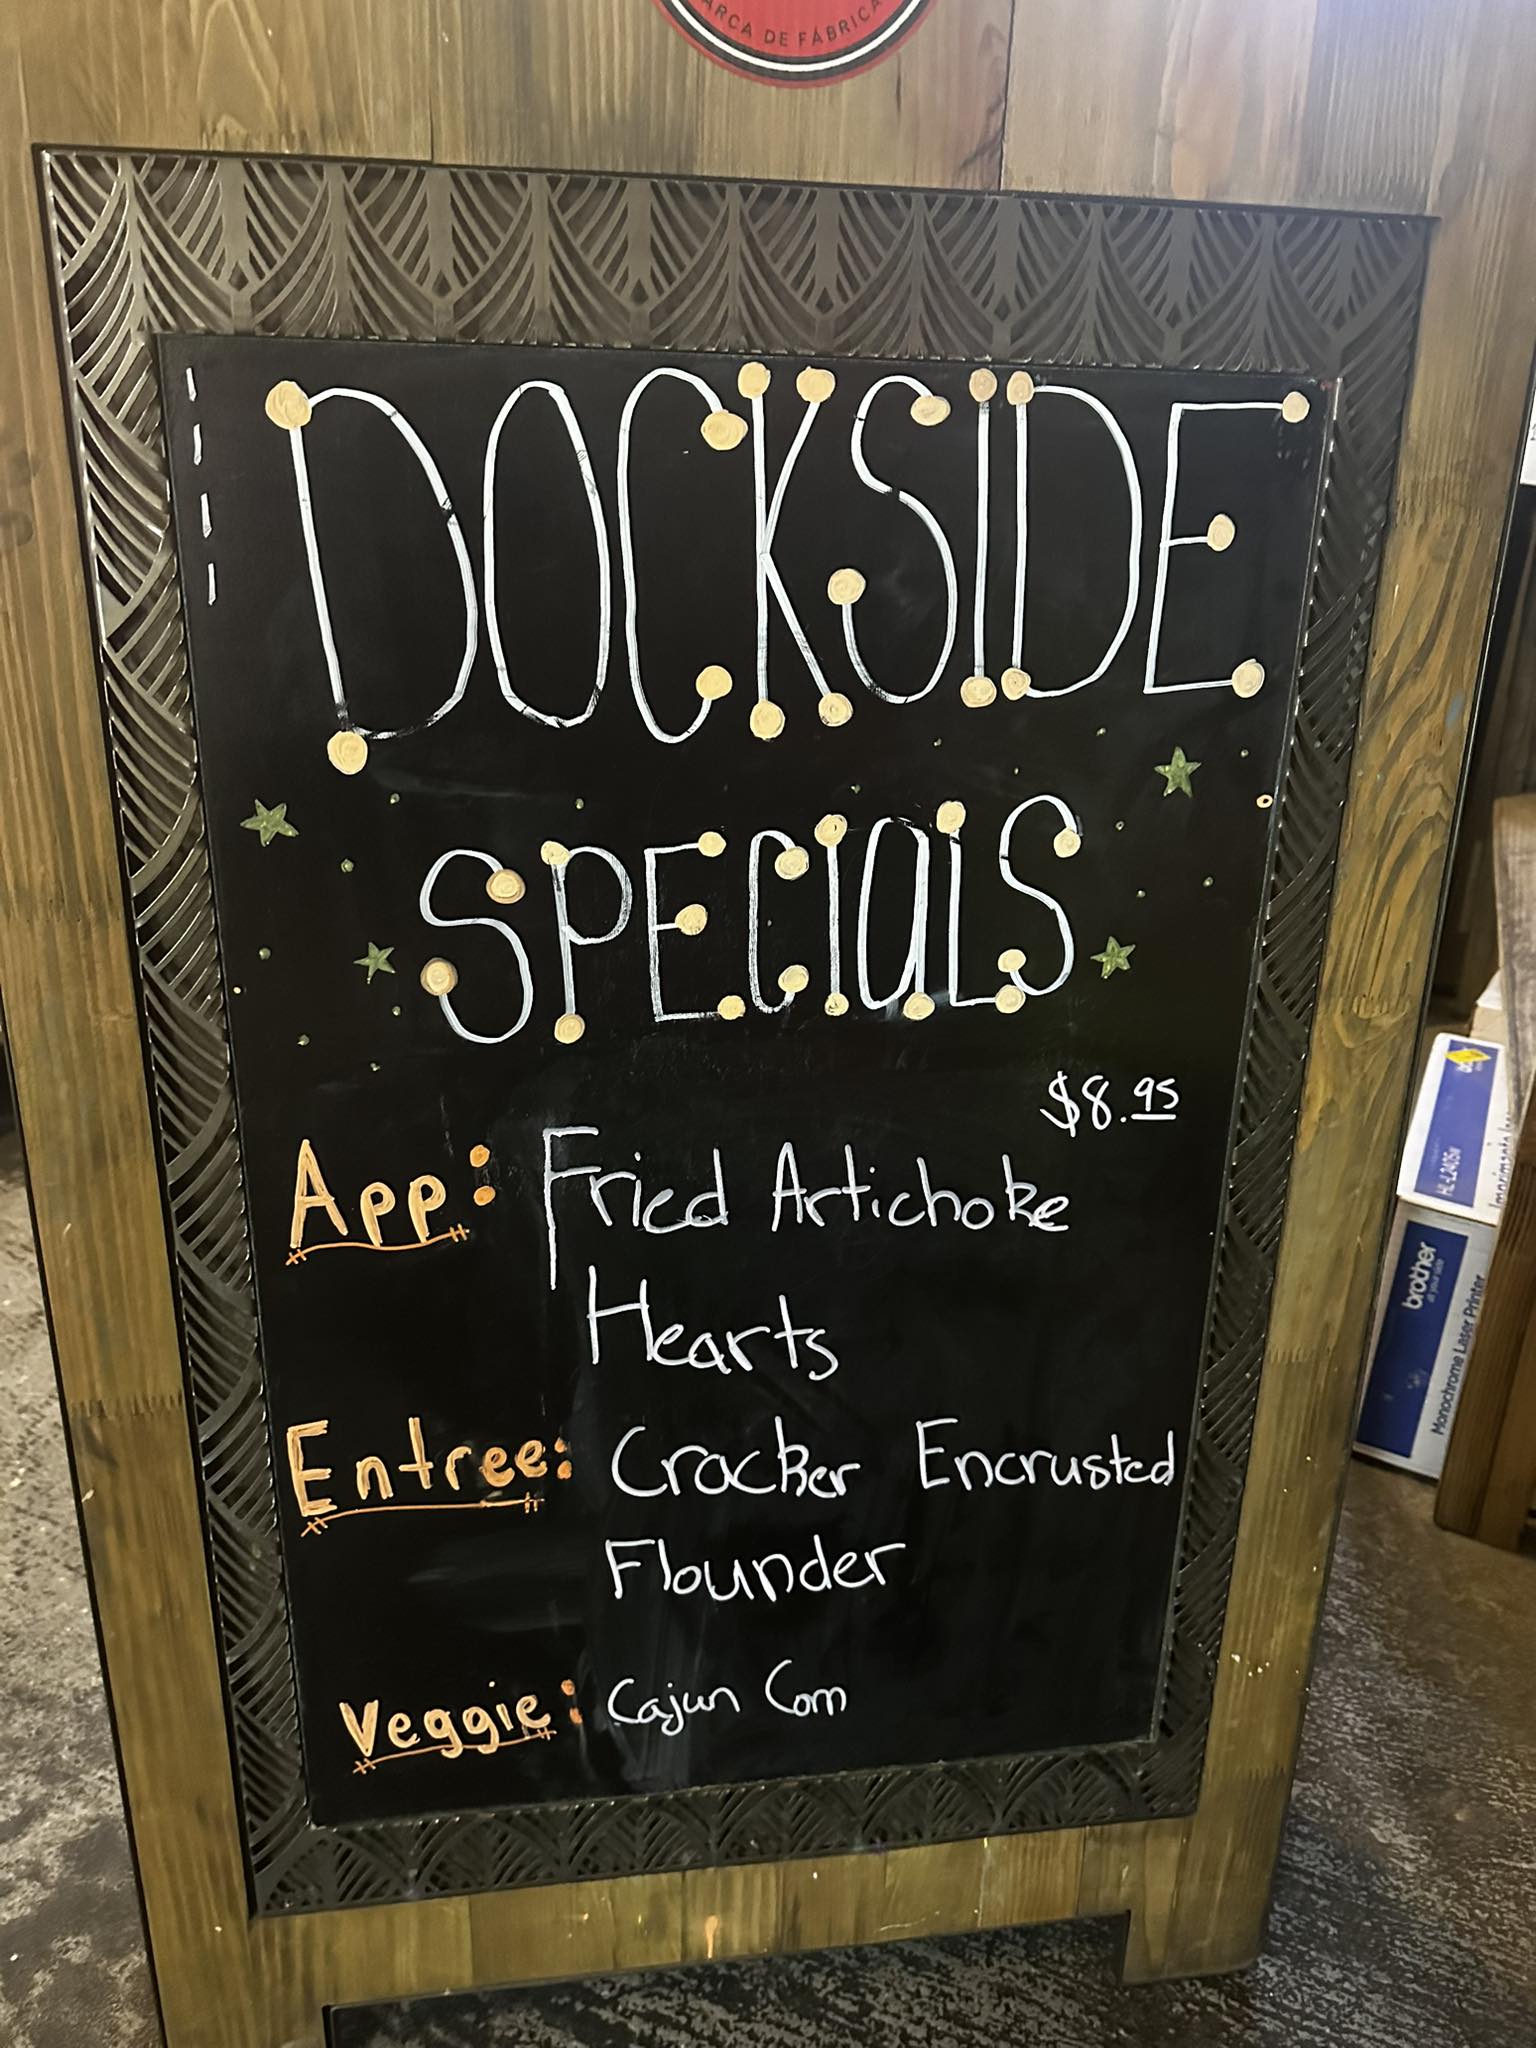 ARCA DE FÁBRICA
DOCKSIDE
SPECIALS
$8.95
App: Fried Artichoke
Hearts
Entree: Cracker Encrusted
Flounder
Veggie: Cajun Corn
HL-L2405W
brother
at your side
Monochrome Laser Printer